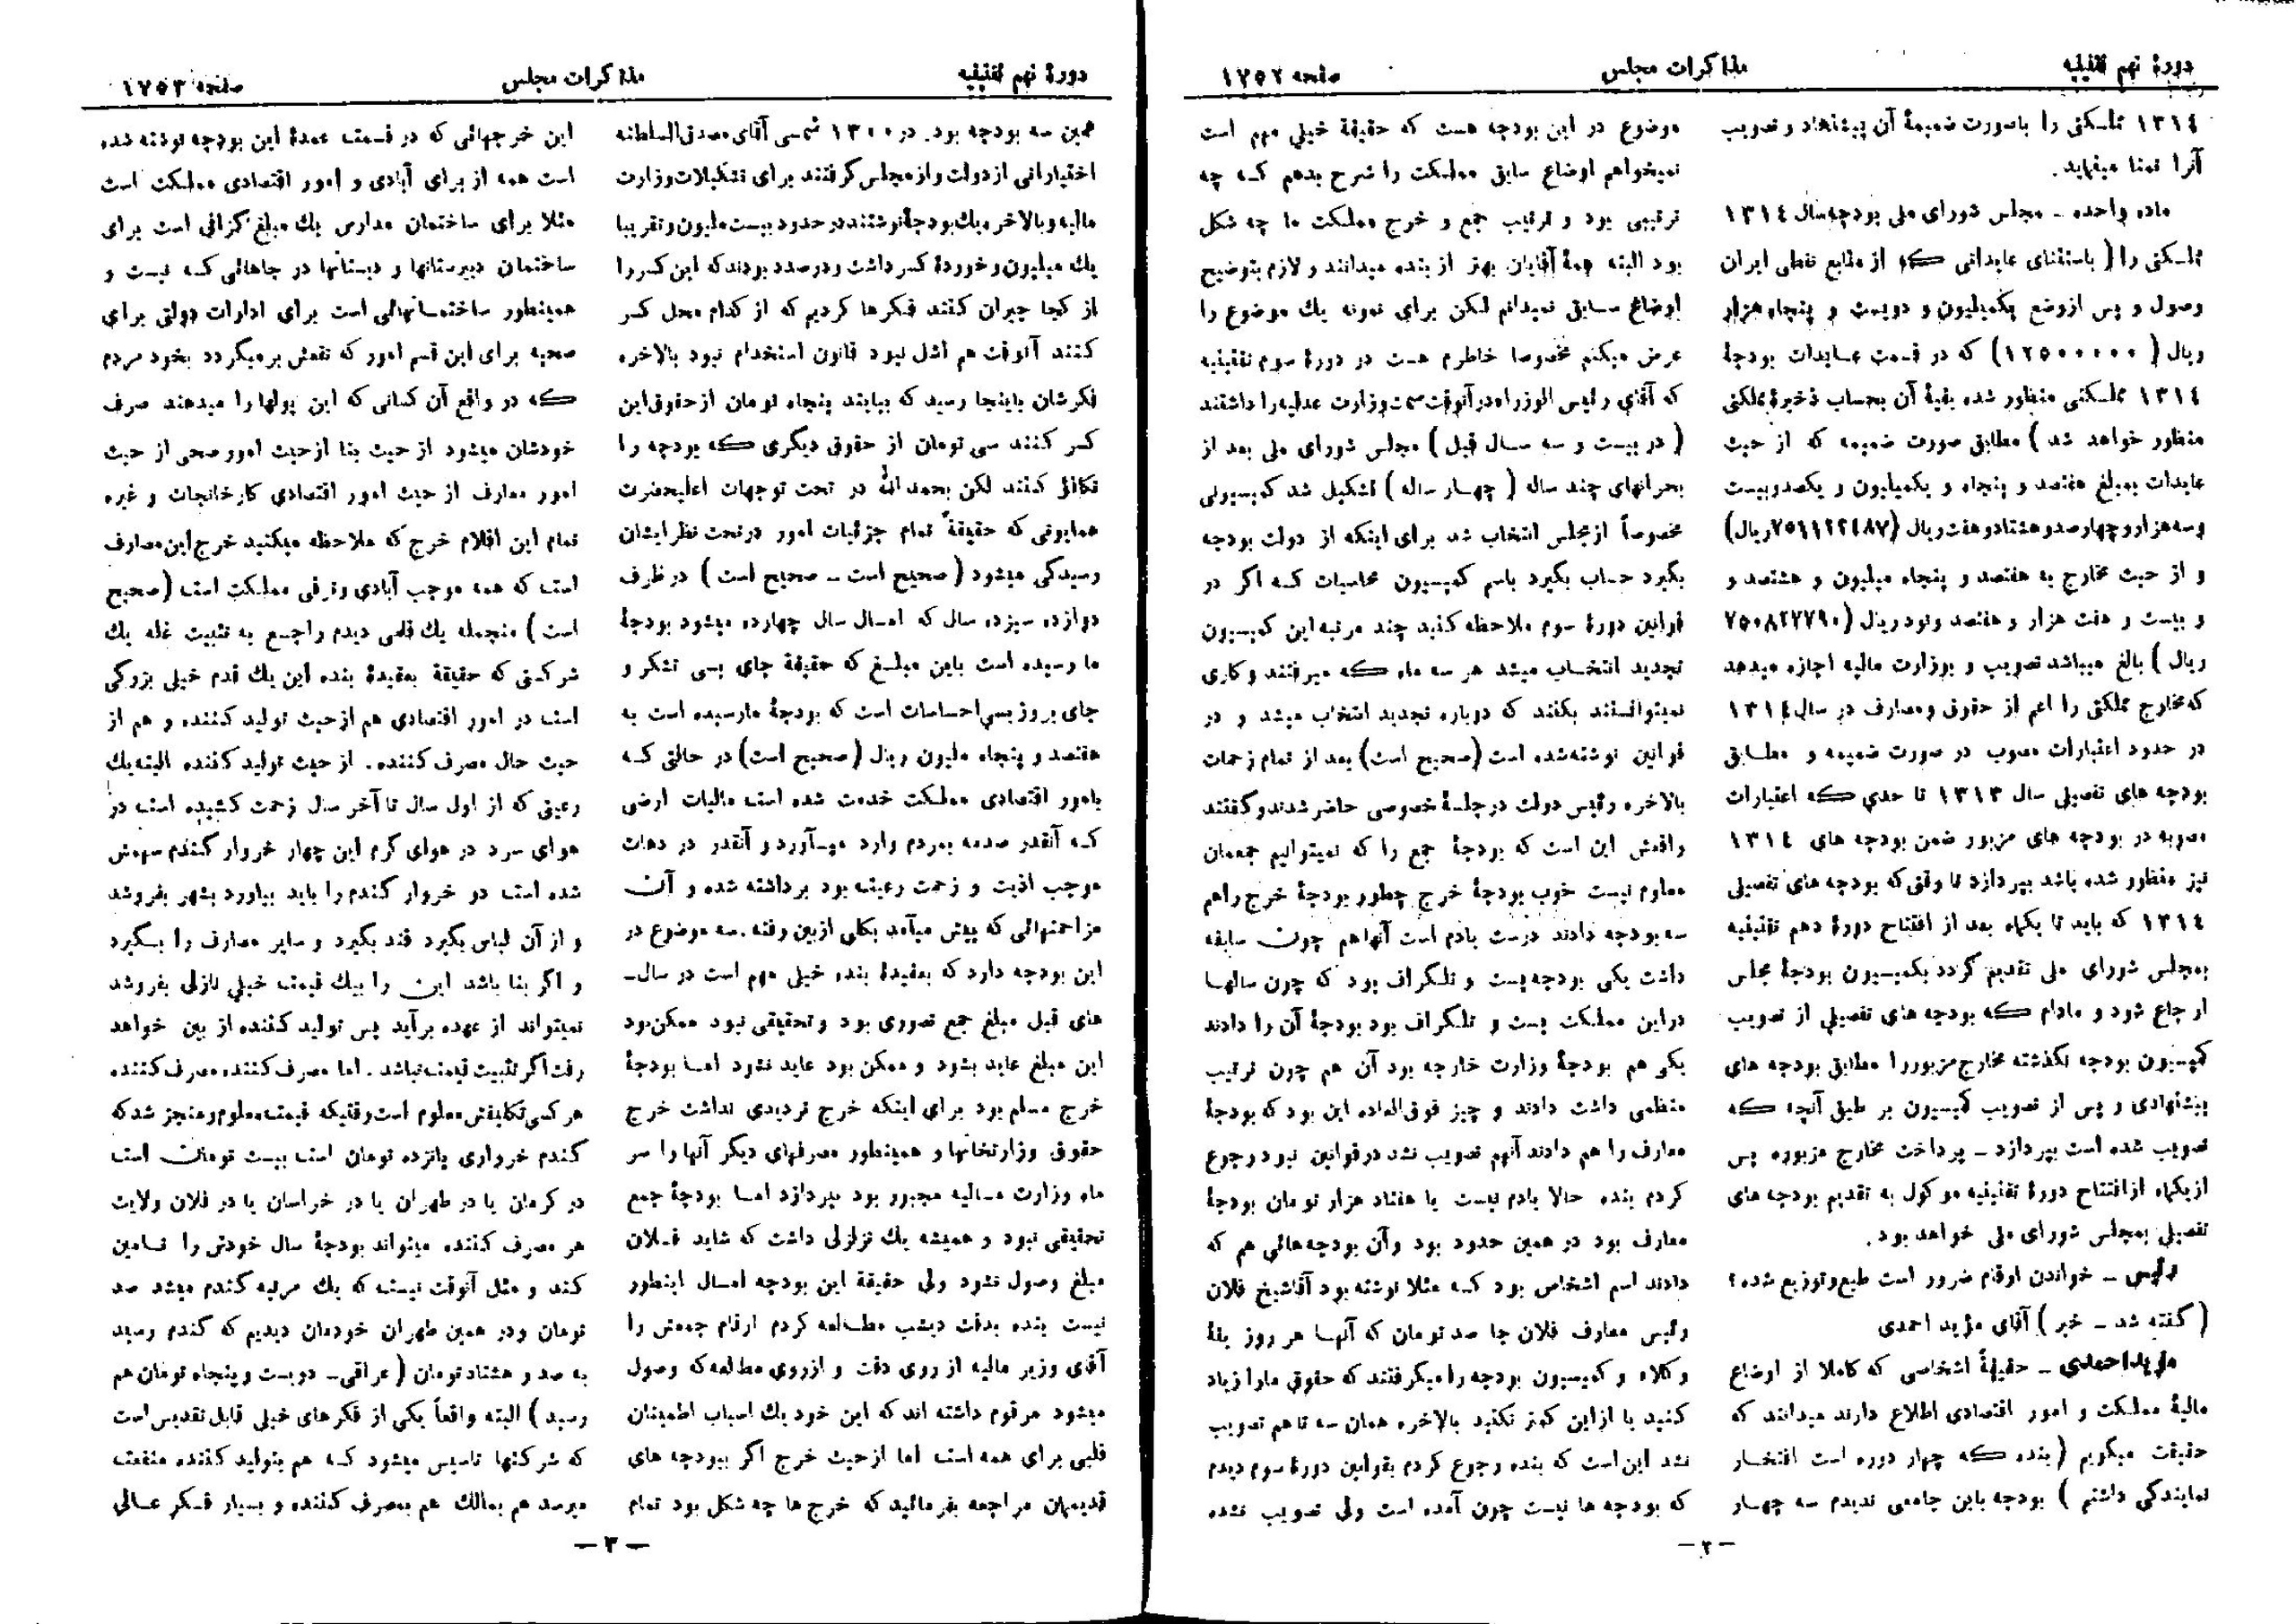 دورهٔ نهم تقنینیه
مذاکرات مجلس
صفحه ۱۷۵۲
۱۳۱٤ مملکتی را باصورت ضمیمهٔ آن پیشنهاد و تصویب
آنرا تمنا مینماید.
ماده واحده ـ مجلس شورای ملی بودجه سال ۱۳۱٤
مملکتی را ( باستثنای عایداتی که از منابع نفطی ایران
وصول و پس از وضع یکمیلیون و دویست و پنجاه هزار
ریال ( ۱۲۵۰۰۰۰۰) که در قسمت عایدات بودجهٔ
۱۳۱٤ مملکتی منظور شده بقیهٔ آن بحساب ذخیرهٔ مملکتی
منظور خواهد شد ) مطابق صورت ضمیمه که از حیث
عایدات بمبلغ هفتصد و پنجاه و یکمیلیون و یکصد و بیست
و سه هزار و چهارصد و هشتاد و هفت ریال (۷۵۱۱۲۳٤۸۷ ریال)
و از حیث مخارج به هفتصد و پنجاه میلیون و هشتصد و
و بیست و هفت هزار و هفتصد و نود ریال (۷۵۰۸۲۷۷۹۰
ریال ) بالغ میباشد تصویب و بوزارت مالیه اجازه میدهد
که مخارج مملکتی را اعم از حقوق و مصارف در سال ۱۳۱٤
در حدود اعتبارات مصوب در صورت ضمیمه و مطابق
بودجه های تفصیلی سال ۱۳۱۳ تا حدی که اعتبارات
مصوبه در بودجه های مزبور ضمن بودجه های ۱۳۱٤
نیز منظور شده باشد بپردازد تا وقتی که بودجه های تفصیلی
۱۳۱٤ که باید تا یکماه بعد از افتتاح دورهٔ دهم تقنینیه
بمجلس شورای ملی تقدیم گردد بکمیسیون بودجهٔ مجلس
ارجاع شود و مادام که بودجه های تفصیلی از تصویب
کمیسیون بودجه نگذشته مخارج مزبور را مطابق بودجه های
پیشنهادی و پس از تصویب کمیسیون بر طبق آنچه که
تصویب شده است بپردازد ـ پرداخت مخارج مزبوره پس
از یکماه از افتتاح دورهٔ تقنینیه موکول به تقدیم بودجه های
تفصیلی بمجلس شورای ملی خواهد بود.
رئیس ـ خواندن ارقام ضرور است طبع و توزیع شده؟
( گفته شد ـ خیر ) آقای مؤید احمدی
مؤید احمدی ـ حقیقةً اشخاصی که کاملا از اوضاع
مالیهٔ مملکت و امور اقتصادی اطلاع دارند میدانند که
حقیقت میگویم (بنده که چهار دوره است افتخار
نمایندگی داشتم ) بودجه باین جامعی ندیدم سه چهار
موضوع در این بودجه هست که حقیقة خیلی مهم است
نمیخواهم اوضاع سابق مملکت را شرح بدهم که چه
ترتیبی بود و ترتیب جمع و خرج مملکت ما چه شکل
بود البته همهٔ آقایان بهتر از بنده میدانند و لازم بتوضیح
اوضاع سابق نمیدانم لکن برای نمونه یك موضوع را
عرض میکنم مخصوصا خاطرم هست در دورهٔ سوم تقنینیه
که آقای رئیس الوزراء در آنوقت سمت وزارت عدلیه را داشتند
( در بیست و سه سال قبل ) مجلس شورای ملی بعد از
بحرانهای چند ساله ( چهار ساله ) تشکیل شد کمیسیونی
مخصوصاً از مجلس انتخاب شد برای اینکه از دولت بودجه
بگیرد حساب بگیرد باسم کمیسیون محاسبات که اگر در
قوانین دورهٔ سوم ملاحظه کنید چند مرتبه این کمیسیون
تجدید انتخاب میشد هر سه ماه که میرفتند و کاری
نمیتوانستند بکنند که دوباره تجدید انتخاب میشد و در
قوانین نوشته شده است (صحیح است) بعد از تمام زحمات
بالاخره رئیس دولت در جلسهٔ خصوصی حاضر شدند و گفتند
راقعش این است که بودجهٔ جمع را که نمیتوانیم جمعمان
معلوم نیست خوب بودجهٔ خرج چطور بودجهٔ خرج را هم
سه بودجه دادند درست یادم است آنها هم چون سابقه
داشت یکی بودجه پست و تلگراف بود که چون سالها
در این مملکت پست و تلگراف بود بودجهٔ آن را دادند
یکی هم بودجهٔ وزارت خارجه بود آن هم چون ترتیب
منظمی داشت دادند و چیز فوق العاده این بود که بودجهٔ
معارف را هم دادند آنهم تصویب نشد در قوانین نبود رجوع
کردم بنده حالا یادم نیست یا هفتاد هزار تومان بودجهٔ
معارف بود در همین حدود بود و آن بودجه هائی هم که
دادند اسم اشخاص بود که مثلا نوشته بود آقا شیخ فلان
رئیس معارف فلان جا صد تومان که آنها هر روز یقهٔ
وکلاء و کمیسیون بودجه را میگرفتند که حقوق مارا زیاد
کنید یا از این کمتر نکنید بالاخره همان سه تا هم تصویب
نشد این است که بنده رجوع کردم بقوانین دورهٔ سوم دیدم
که بودجه ها نیست چون آمده است ولی تصویب نشده
ـ ۲ ـ
دورهٔ نهم تقنینیه
مذاکرات مجلس
صفحه ۱۷۵۳
همین سه بودجه بود. در ۱۳۰۰ شمسی آقای مصدق السلطنه
اختیاراتی از دولت و از مجلس گرفتند برای تشکیلات وزارت
مالیه و بالاخره یك بودجهٔ نوشتند در حدود بیست ملیون و تقریبا
یك میلیون و خوردهٔ کسر داشت و درصدد بودند که این کسر را
از کجا جبران کنند فکرها کردیم که از کدام محل کسر
کنند آنوقت هم اشل نبود قانون استخدام نبود بالاخره
فکرشان باینجا رسید که بیایند پنجاه تومان از حقوق این
کسر کنند سی تومان از حقوق دیگری که بودجه را
تکافؤ کنند لکن بحمدالله در تحت توجهات اعلیحضرت
همایونی که حقیقةً تمام جزئیات امور در تحت نظر ایشان
رسیدگی میشود ( صحیح است ـ صحیح است ) در ظرف
دوازده سیزده سال که امسال سال چهارده میشود بودجهٔ
ما رسیده است باین مبلغ که حقیقة جای بسی تشکر و
جای بروز بسی احساسات است که بودجهٔ ما رسیده است به
هفتصد و پنجاه ملیون ریال (صحیح است) در حالتی که
بامور اقتصادی مملکت خدمت شده است مالیات ارضی
که آنقدر صدمه بمردم وارد میآورد و آنقدر در دهات
موجب اذیت و زحمت رعیت بود برداشته شده و آن
مزاحمتهائی که پیش میآمد بکلی از بین رفته. سه موضوع در
این بودجه دارد که بعقیدهٔ بنده خیلی مهم است در سال ـ
های قبل مبلغ جمع تصوری بود و تحقیقی نبود ممکن بود
این مبلغ عاید بشود و ممکن بود عاید نشود اما بودجهٔ
خرج مسلم بود برای اینکه خرج تردیدی نداشت خرج
حقوق وزارتخانها و همینطور مصرفهای دیگر آنها را سر
ماه وزارت مالیه مجبور بود بپردازد اما بودجهٔ جمع
تحقیقی نبود و همیشه یك تزلزلی داشت که شاید فلان
مبلغ وصول نشود ولی حقیقة این بودجه امسال اینطور
نیست بنده بدقت دیشب مطالعه کردم ارقام جمعش را
آقای وزیر مالیه از روی دقت و از روی مطالعه که وصول
میشود مرقوم داشته اند که این خود یك اسباب اطمینان
قلبی برای همه است اما از حیث خرج اگر ببودجه های
قدیمیان مراجعه بفرمائید که خرج ها چه شکل بود تمام
این خرجهائی که در قسمت عمدهٔ این بودجه نوشته شده
است همه از برای آبادی و امور اقتصادی مملکت است
مثلا برای ساختمان مدارس یك مبلغ گزافی است برای
ساختمان دبیرستانها و دبستانها در جاهائی که نیست و
همینطور ساختمانهائی است برای ادارات دولتی برای
صحیه برای این قسم امور که نفعش برمیگردد بخود مردم
که در واقع آن کسانی که این پولها را میدهند صرف
خودشان میشود از حیث بنا از حیث امور صحی از حیث
امور معارف از حیث امور اقتصادی کارخانجات و غیره
تمام این اقلام خرج که ملاحظه میکنید خرج این مصارف
است که همه موجب آبادی و ترقی مملکت است (صحیح
است) منجمله یك قلمی دیدم راجع به تثبیت غله یك
شرکتی که حقیقة بعقیدهٔ بنده این یك قدم خیلی بزرگی
است در امور اقتصادی هم از حیث تولید کننده و هم از
حیث حال مصرف کننده. از حیث تولید کننده البته یك
رعیتی که از اول سال تا آخر سال زحمت کشیده است در
هوای سرد در هوای گرم این چهار خروار گندم سهمش
شده است دو خروار گندم را باید بیاورد بشهر بفروشد
و از آن لباس بگیرد قند بگیرد و سایر مصارف را بگیرد
و اگر بنا باشد این را بیك قیمت خیلی نازلی بفروشد
نمیتواند از عهده برآید پس تولید کننده از بین خواهد
رفت اگر تثبیت قیمت نباشد. اما مصرف کننده مصرف کننده
هر کسی تکلیفش معلوم است وقتیکه قیمت معلوم و منجز شد که
گندم خرواری پانزده تومان است بیست تومان است
در کرمان یا در طهران یا در خراسان یا در فلان ولایت
هر مصرف کننده میتواند بودجهٔ سال خودش را تامین
کند و مثل آنوقت نیست که یك مرتبه گندم میشد صد
تومان و در همین طهران خودمان دیدیم که گندم رسید
به صد و هشتاد تومان (عراقی ـ دویست و پنجاه تومان هم
رسید ) البته واقعاً یکی از فکرهای خیلی قابل تقدیس است
که شرکتها تاسیس میشود که هم بتولید کننده منفعت
میرسد هم بمالك هم بمصرف کننده و بسیار فکر عالی
ـ ۳ ـ